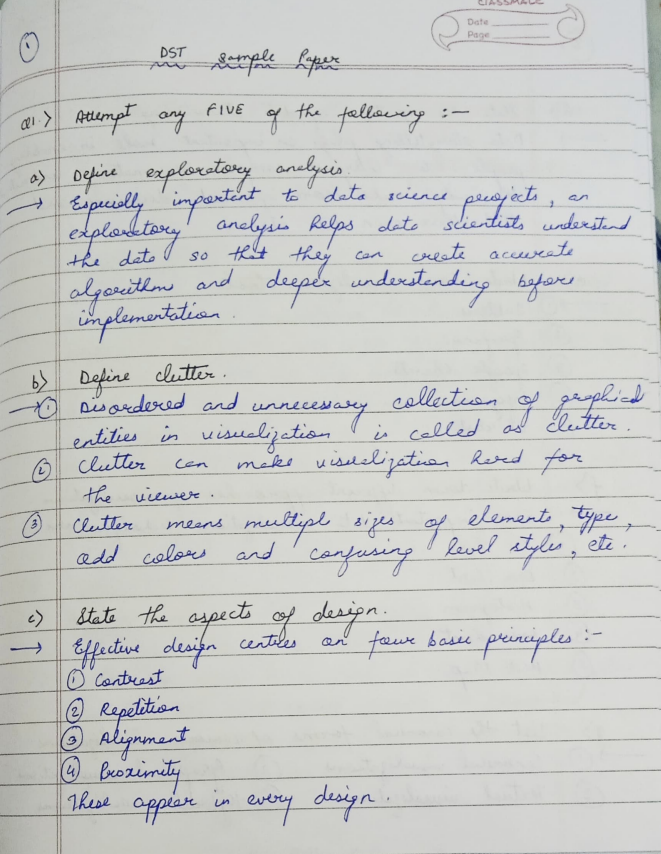 CLASSMATE
Date
Page
1
DST Sample Paper
Q1.> Attempt any FIVE of the following :-
a) Define exploratory analysis.
→ Especially important to data science projects, an
exploratory analysis helps data scientists understand
the data so that they can create accurate
algorithm and deeper understanding before
implementation.
b) Define clutter.
→ 1 Disordered and unnecessary collection of graphical
entities in visualization is called as clutter.
2 Clutter can make visualization hard for
the viewer.
3 Clutter means multiple sizes of elements, type,
odd colors and confusing level styles, etc.
c) State the aspects of design.
→ Effective design centres on four basic principles :-
1 Contrast
2 Repetition
3 Alignment
4 Proximity
These appear in every design.